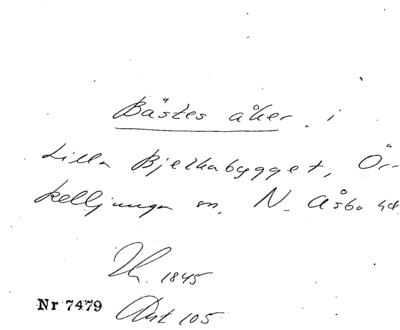 Bästes åker i
Lilla Bjerkabygget, Ör-
kelljunga sn, N. Åsbo hd.
1845
Nr 7479 Akt 105